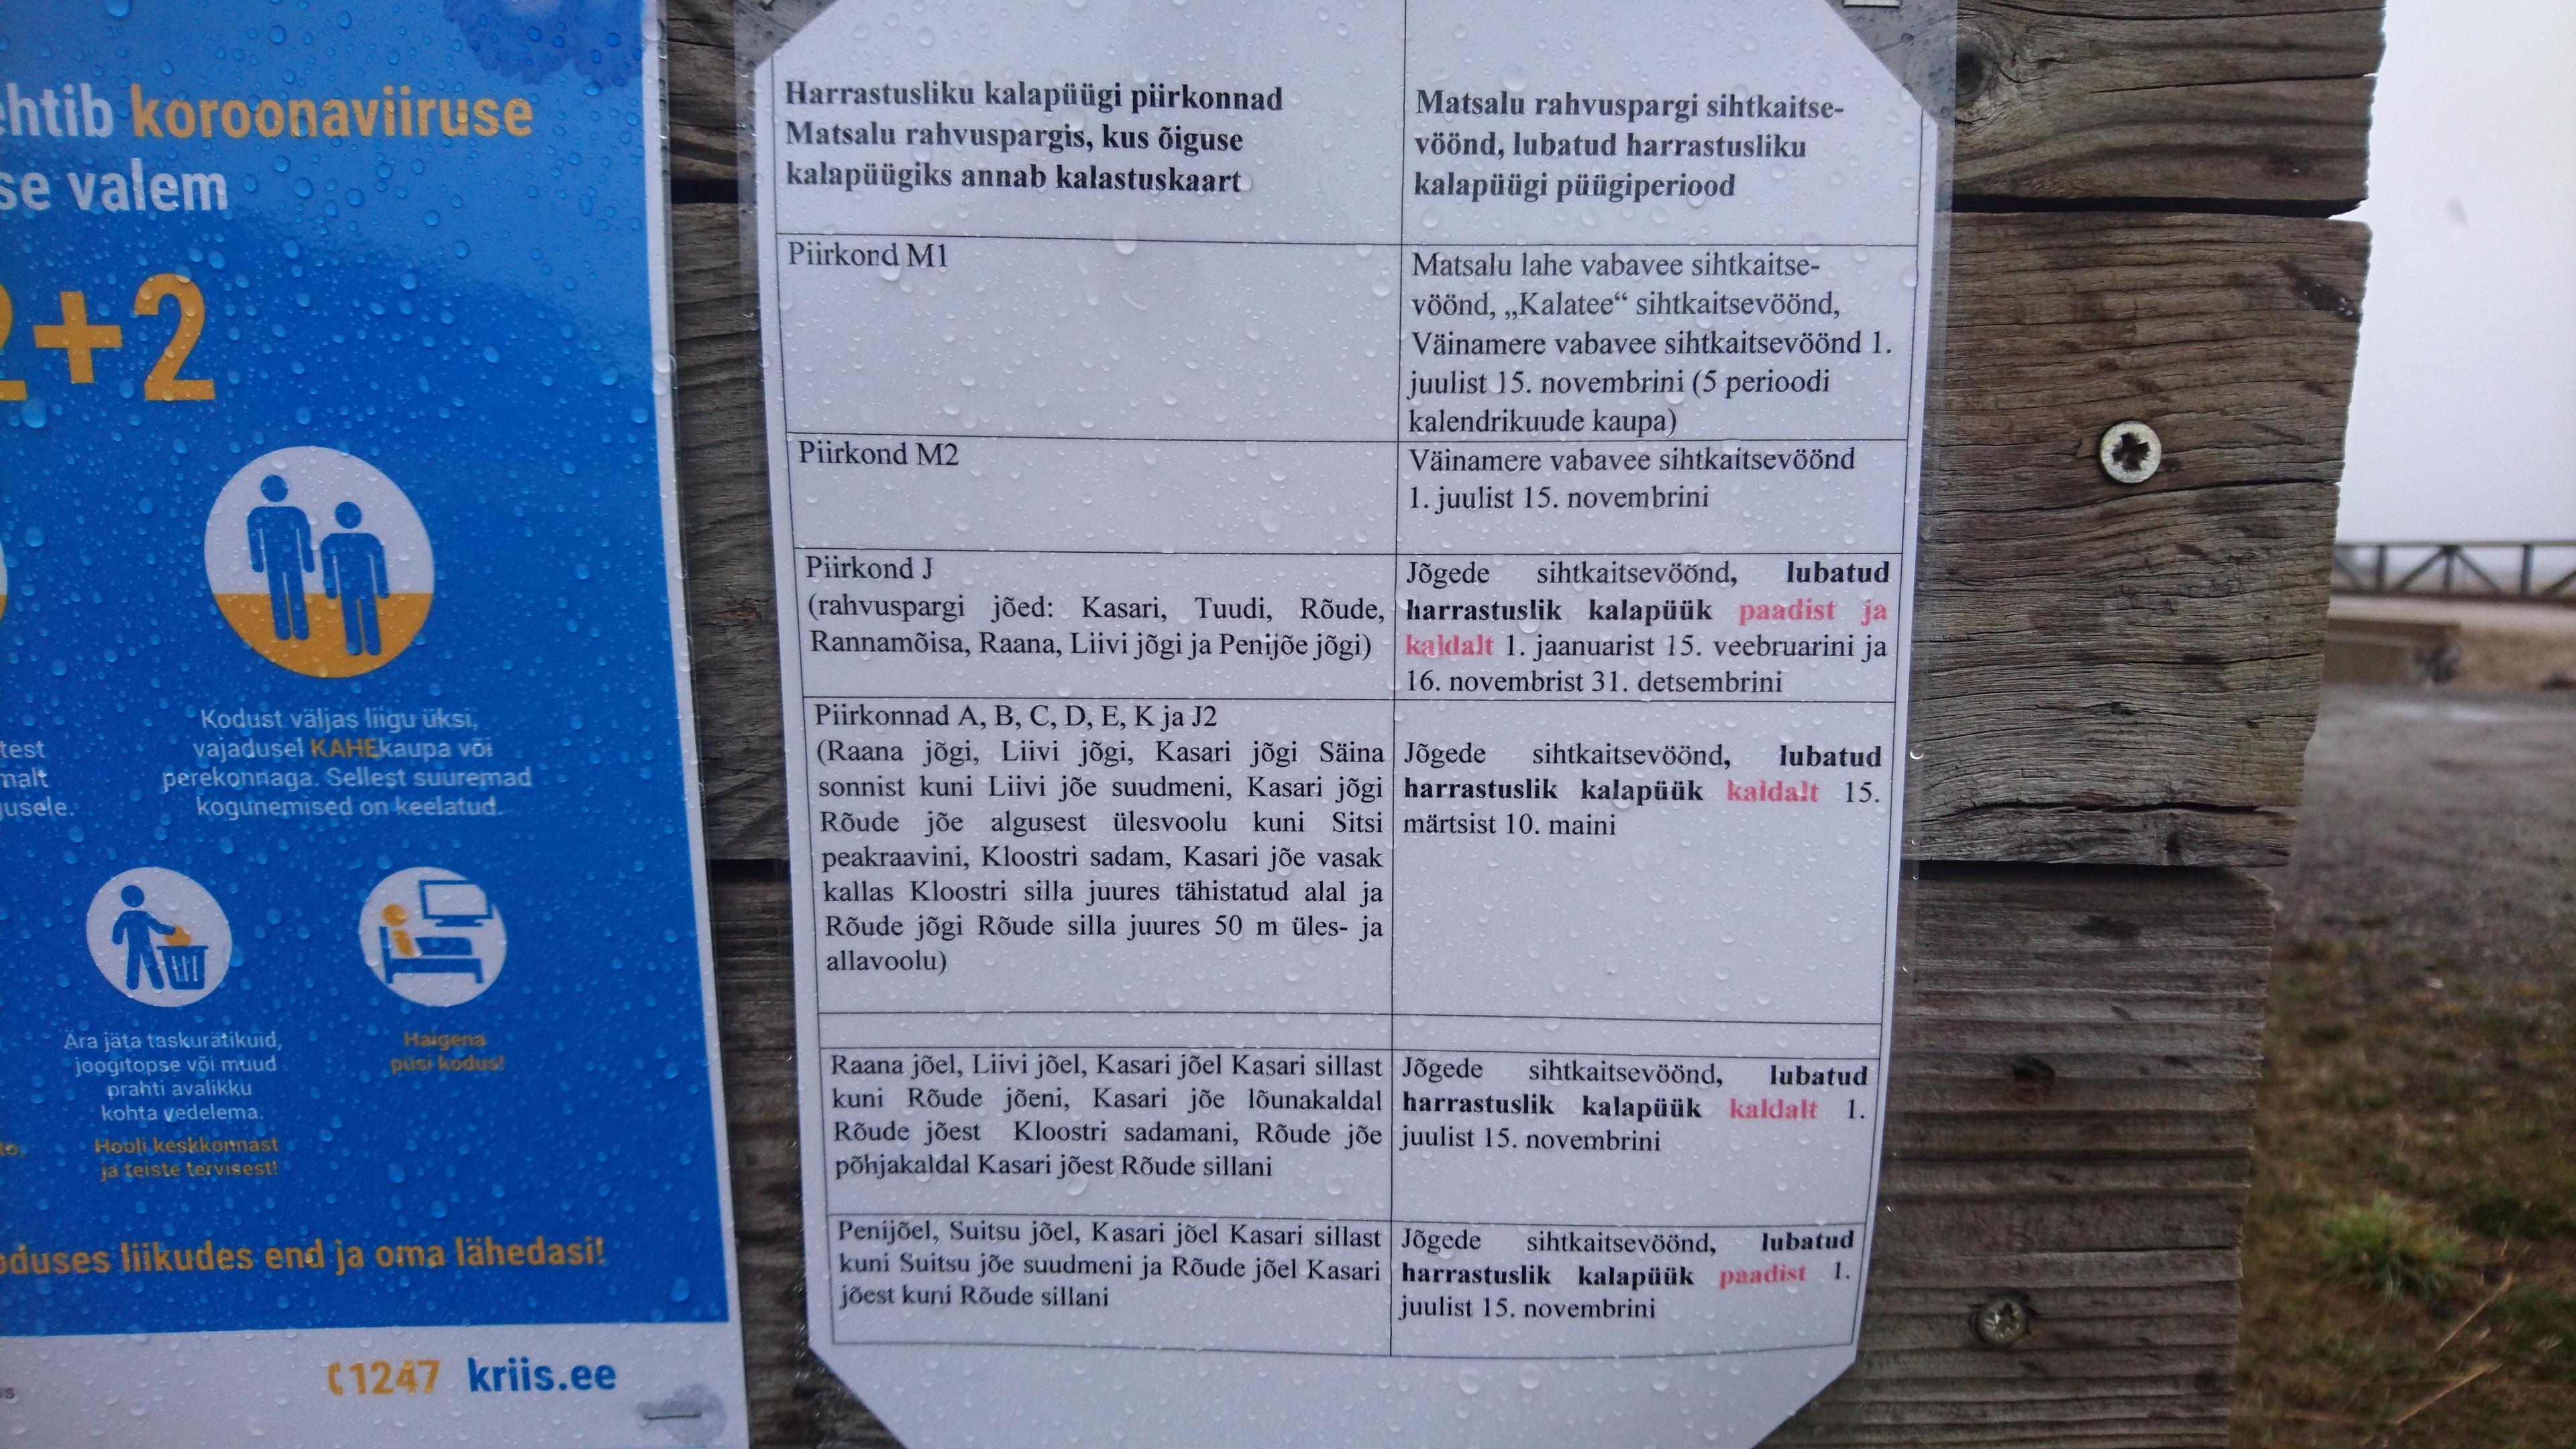 koroonaviiruse
valem
+2
Kodust väljas liigu üksi,
vajadusel KAHEkaupa või
perekonnaga. Sellest suuremad
kogunemised on keelatud.
Ära jäta taskurätikuid,
joogitopse või muud
prahti avalikku
kohta vedelema.
Hooli keskkonnast
ja teiste tervisest!
Haigena
püsi kodus!
liikudes end ja oma lähedasi!
1247 kriis.ee
Harrastusliku kalapüügi piirkonnad
Matsalu rahvuspargis, kus õiguse
kalapüügiks annab kalastuskaart
Matsalu rahvuspargi sihtkaitse-
vöönd, lubatud harrastusliku
kalapüügi püügiperiood
Piirkond M1
Matsalu lahe vabavee sihtkaitse-
vöönd, „Kalatee“ sihtkaitsevöönd,
Väinamere vabavee sihtkaitsevöönd 1.
juulist 15. novembrini (5 perioodi
kalendrikuude kaupa)
Piirkond M2
Väinamere vabavee sihtkaitsevöönd
1. juulist 15. novembrini
Piirkond J
(rahvuspargi jõed: Kasari, Tuudi, Rõude,
Rannamõisa, Raana, Liivi jõgi ja Penijõe jõgi)
Jõgede sihtkaitsevöönd, lubatud
harrastuslik kalapüük paadist ja
kaldalt 1. jaanuarist 15. veebruarini ja
16. novembrist 31. detsembrini
Piirkonnad A, B, C, D, E, K ja J2
(Raana jõgi, Liivi jõgi, Kasari jõgi Säina
sonnist kuni Liivi jõe suudmeni, Kasari jõgi
Rõude jõe algusest ülesvoolu kuni Sitsi
peakraavini, Kloostri sadam, Kasari jõe vasak
kallas Kloostri silla juures tähistatud alal ja
Rõude jõgi Rõude silla juures 50 m üles- ja
allavoolu)
Jõgede sihtkaitsevöönd, lubatud
harrastuslik kalapüük kaldalt 15.
märtsist 10. maini
Raana jõel, Liivi jõel, Kasari jõel Kasari sillast
kuni Rõude jõeni, Kasari jõe lõunakaldal
Rõude jõest Kloostri sadamani, Rõude jõe
põhjakaldal Kasari jõest Rõude sillani
Jõgede sihtkaitsevöönd, lubatud
harrastuslik kalapüük kaldalt 1.
juulist 15. novembrini
Penijõel, Suitsu jõel, Kasari jõel Kasari sillast
kuni Suitsu jõe suudmeni ja Rõude jõel Kasari
jõest kuni Rõude sillani
Jõgede sihtkaitsevöönd, lubatud
harrastuslik kalapüük paadist 1.
juulist 15. novembrini